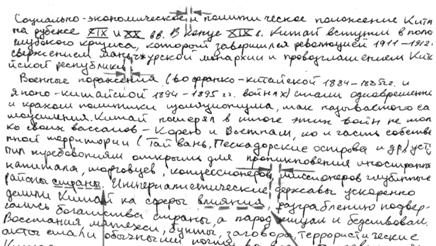 Социально-экономическое и политическое положение Кита
на рубеже XIX и XX вв. В конце XIX в. Китай вступил в поло
глубокого кризиса, который завершился революцией 1911-1912
свержением маньчжурской монархии и провозглашением Кит
йской республики.
Военные поражения (во франко-китайской 1884-1885 гг. и
японо-китайской 1894-1895 гг. войнах) стали одновременно
и крахом политики самоусиления. Китай потерял в итоге этих войн не толь
ко своих вассалов - Корею и Вьетнам, но и часть собстве
нной территории (Тайвань, Пескадорские острова и другие
был требованиям открыт для проникновения иностранн
капитала, торговцев, концессионеров, миссионеров глубинные
районы страны. Империалистические державы ускоренно
делили Китай на сферы влияния, разграблению подвер
гались богатства страны, а народ нищал и бедствовал.
Восстания, мятежи, бунты, заговоры, террористические
акты стали обычными